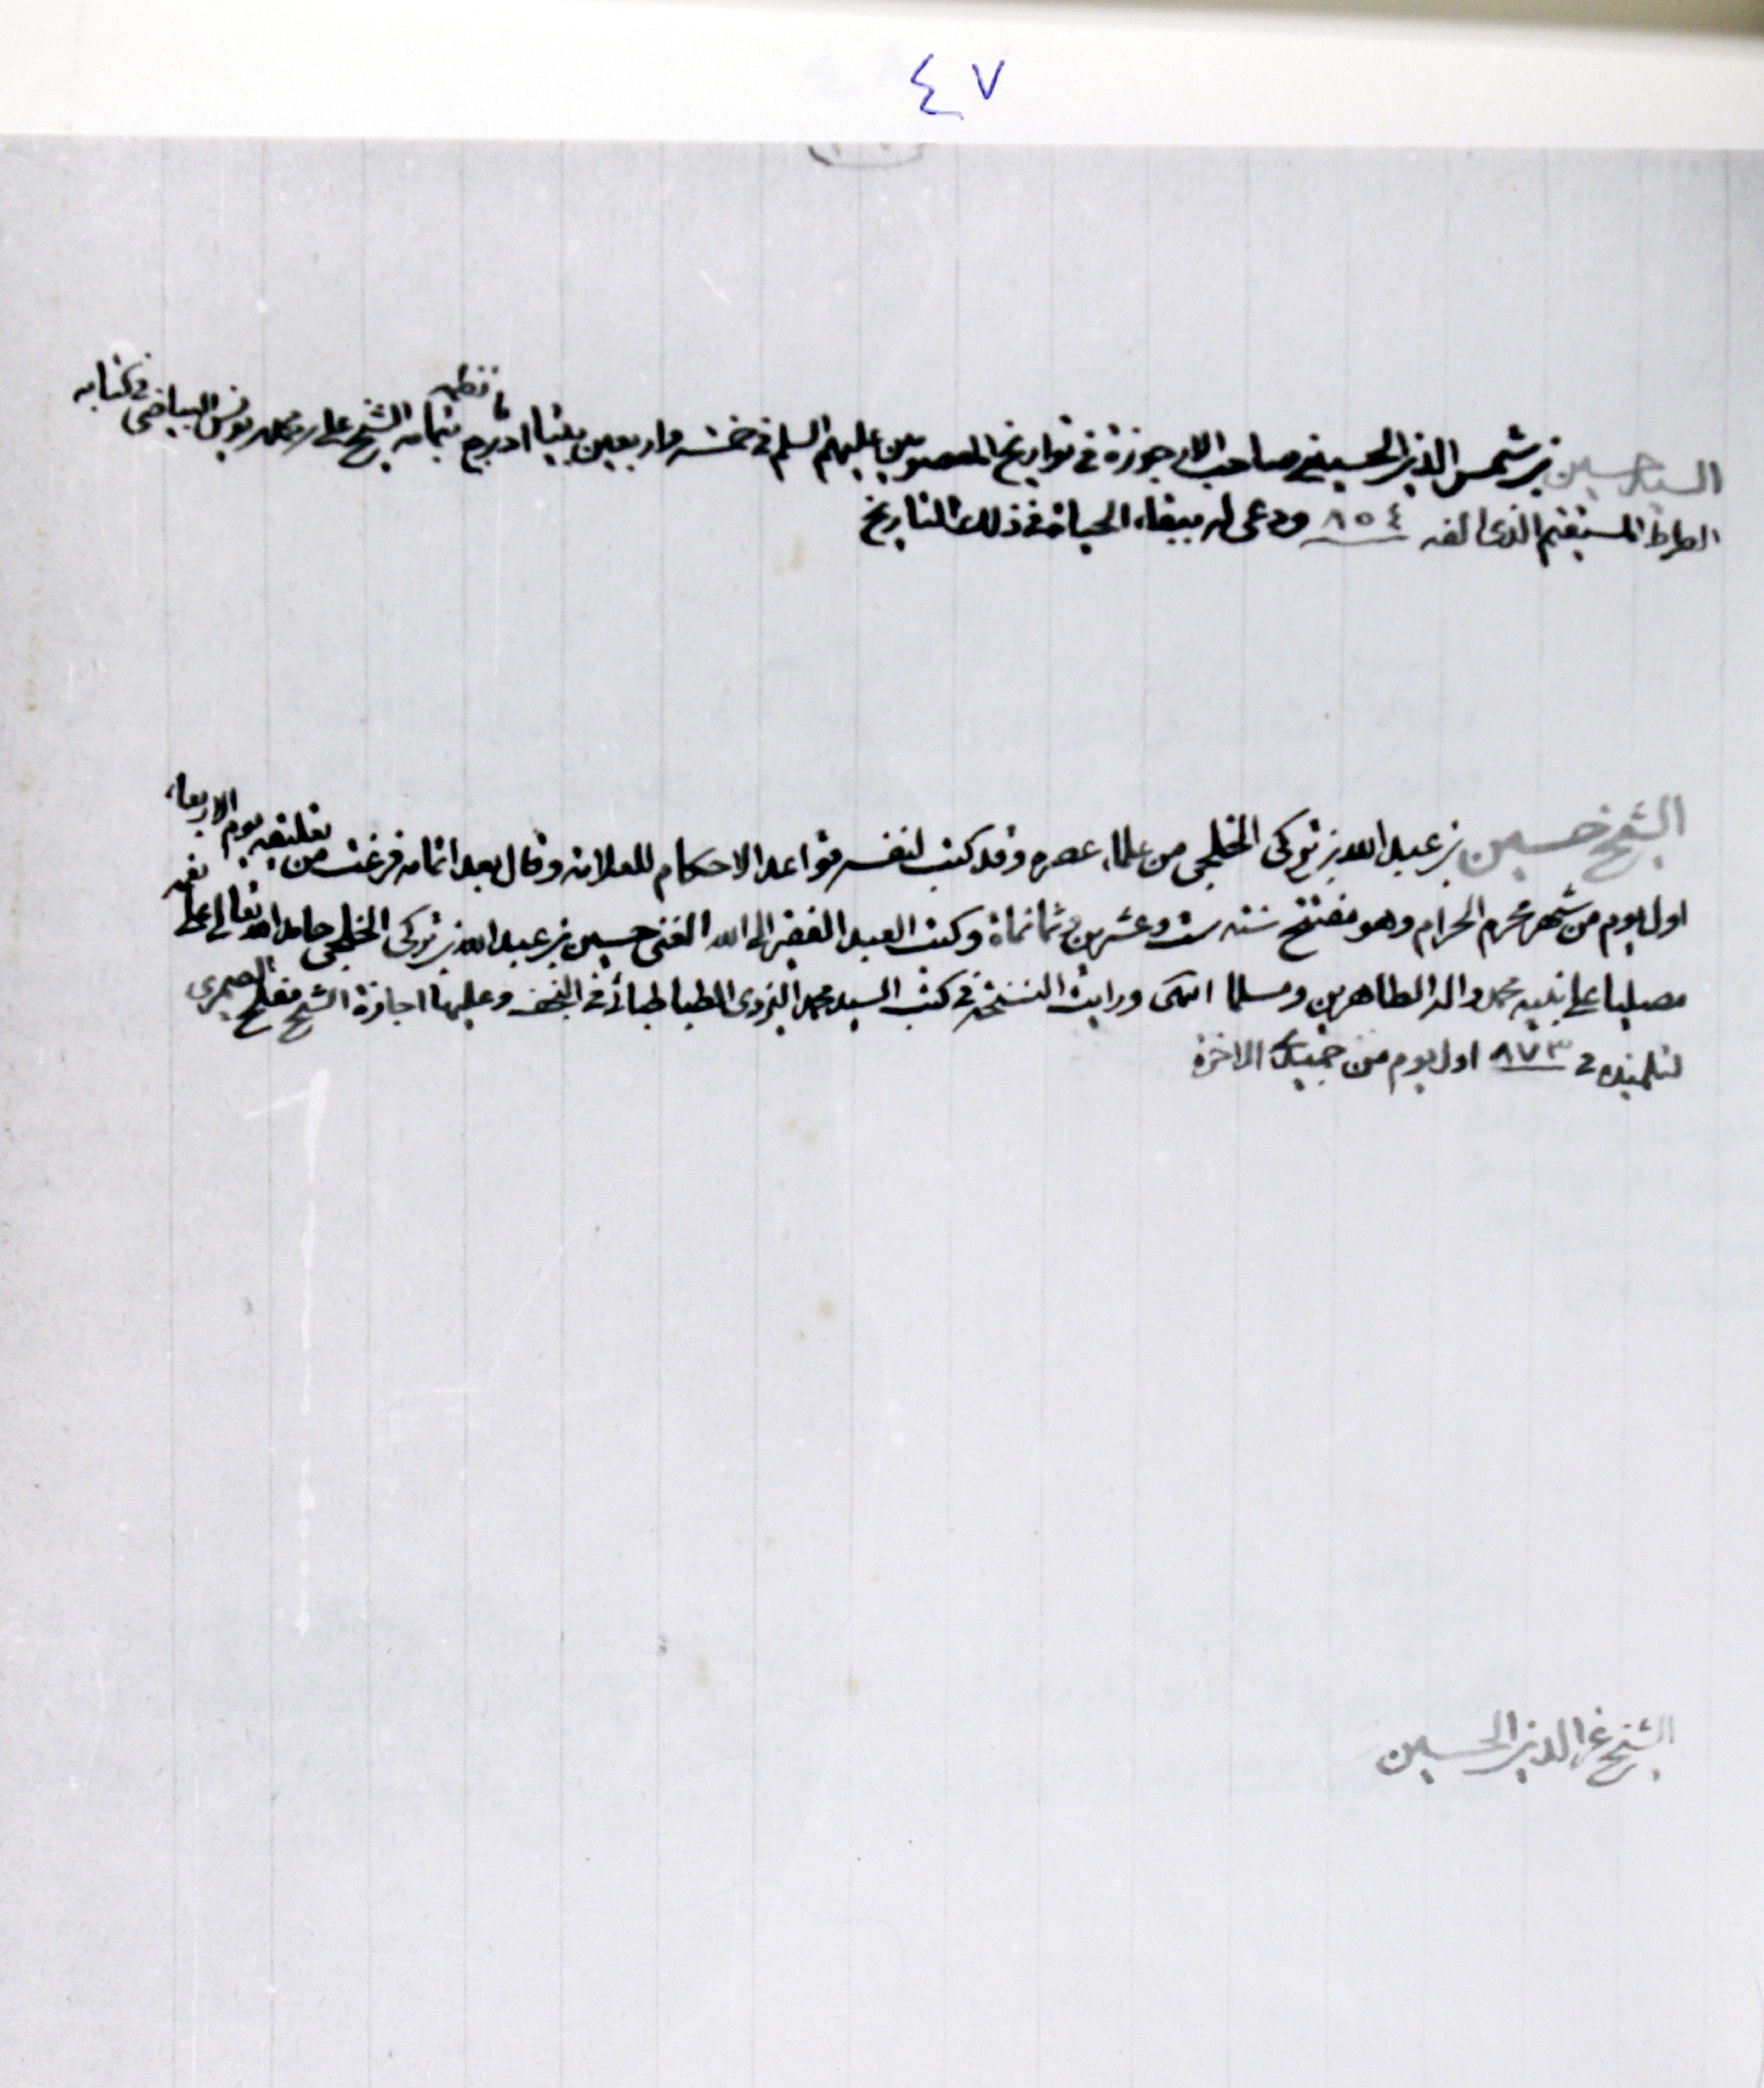 ٤٧
السيد حسين بن شمس الدين الحسيني صاحب الارجوزة في تواريخ المعصومين عليهم السلم في خمسه واربعين بيتا اورد ما نظمه بتمامه الشيخ علي بن محمد بن يونس البياضي في كتابه
الصراط المستقيم الذى الفه ٨٥٤ ودعى له ببقاء الحياة في ذلك التاريخ
الشيخ حسين بن عبد الله بن توكى الخليجى من علماء عصره وقد كتب لنفسه قواعد الاحكام للعلامة وقال بعد اتمامه فرغت من تعليقه يوم الاربعاء
اول يوم من شهر محرم الحرام وهو مفتتح سنة ست وعشرين وثمانمأة وكتب العبد الفقير الى الله الغنى حسين بن عبد الله بن توكى الخليجى حامدا لله تعالى على نعمه
مصليا على نبيه محمد واله الطاهرين ومسلما انتهى ورايت النسخة في كتب السيد محمد اليزدى الطباطبائى في النجف وعليها اجازة الشيخ مفلح الصيمرى
لتلميذه في ٨٧٣ اول يوم من جميدى الاخرة
الشيخ عز الدين الحسين